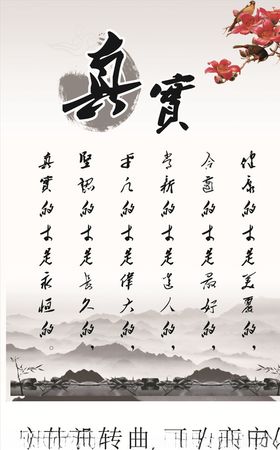 真實
健康的才是美麗的，
合適的才是最好的，
常新的才是迷人的，
平凡的才是偉大的，
堅韌的才是長久的，
真實的才是永恒的。
转曲